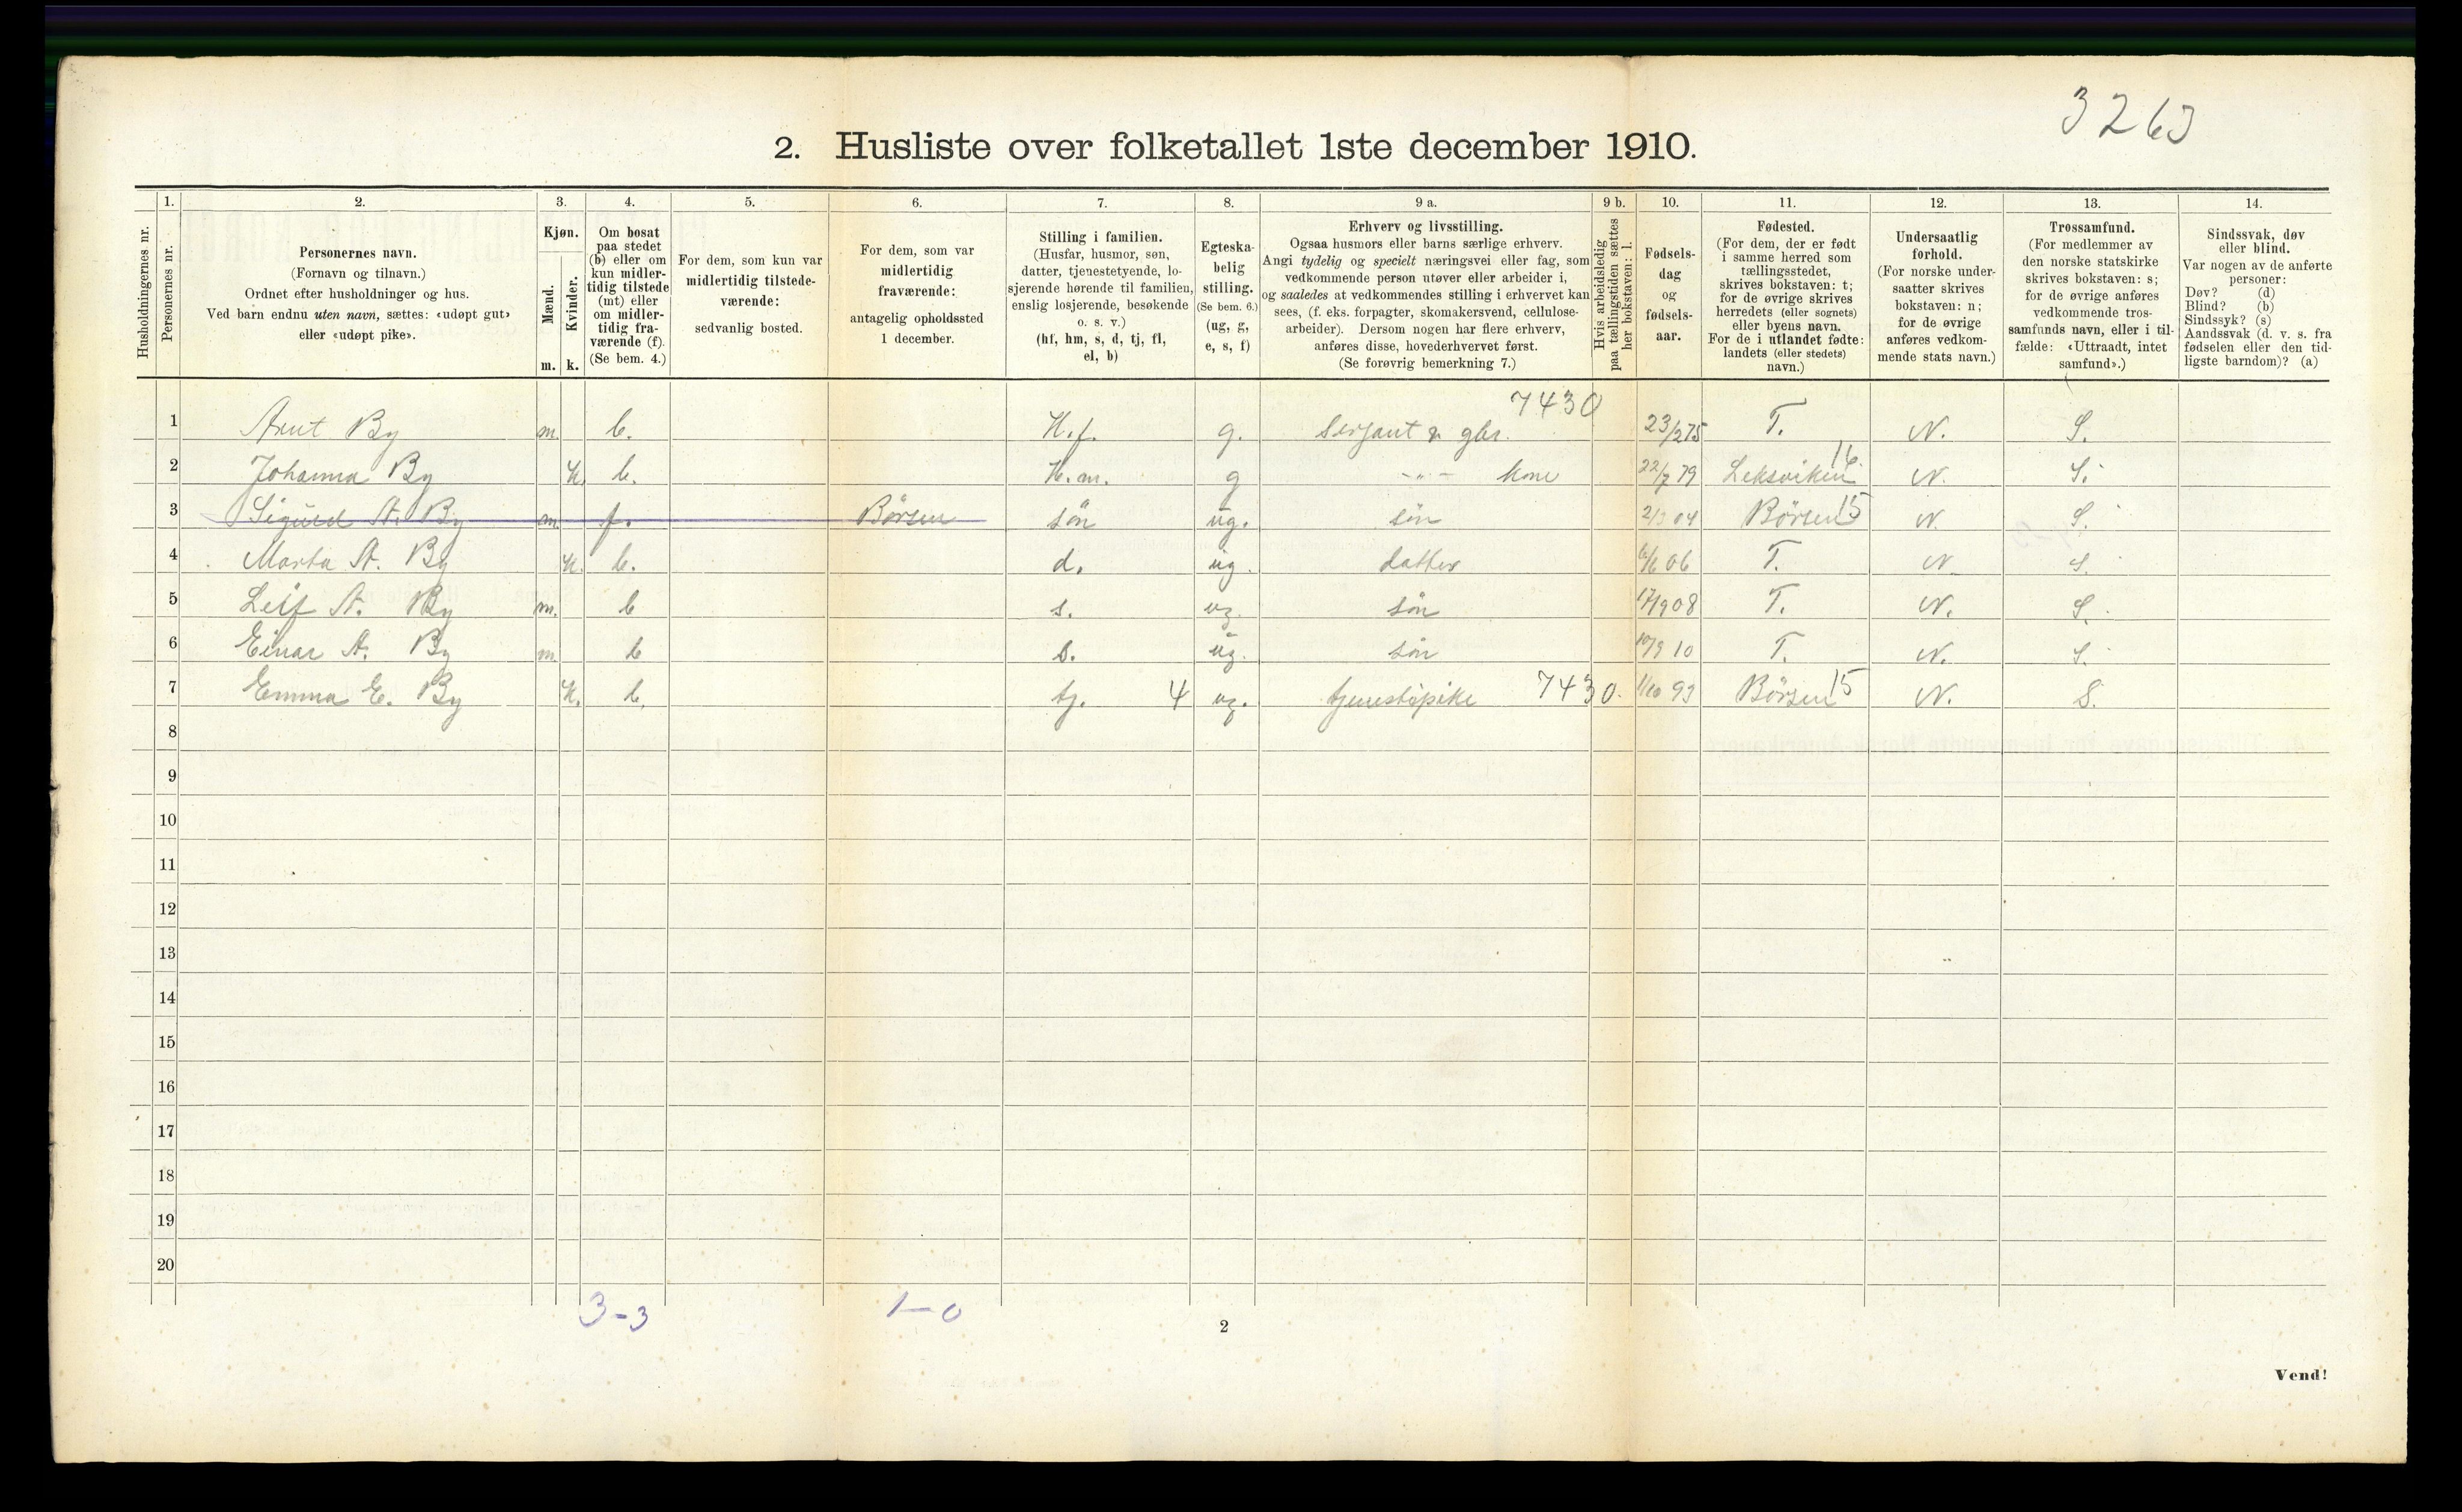 3263
2. Husliste over folketallet 1ste december 1910.
Husholdningernes nr.
1. Personernes nr.
2. Personernes navn.
(Fornavn og tilnavn.)
Ordnet efter husholdninger og hus.
Ved barn endnu uten navn, sættes: «udøpt gut»
eller «udøpt pike».
3. Kjøn.
Mænd. Kvinder.
m. k.
4. Om bosat
paa stedet
(b) eller om
kun midler-
tidig tilstede
(mt) eller
om midler-
tidig fra-
værende (f).
(Se bem. 4.)
5. For dem, som kun var
midlertidig tilstede-
værende:
sedvanlig bosted.
6. For dem, som var
midlertidig
fraværende:
antagelig opholdssted
1 december.
7. Stilling i familien.
(Husfar, husmor, søn,
datter, tjenestetyende, lo-
sjerende hørende til familien,
enslig losjerende, besøkende
o. s. v.)
(hf, hm, s, d, tj, fl,
el, b)
8. Egteska-
belig
stilling.
(Se bem. 6.)
(ug, g,
e, s, f)
9 a. Erhverv og livsstilling.
Ogsaa husmors eller barns særlige erhverv.
Angi tydelig og specielt næringsvei eller fag, som
vedkommende person utøver eller arbeider i,
og saaledes at vedkommendes stilling i erhvervet kan
sees, (f. eks. forpagter, skomakersvend, cellulose-
arbeider). Dersom nogen har flere erhverv,
anføres disse, hovederhvervet først.
(Se forøvrig bemerkning 7.)
9 b. Hvis arbeidsledig
paa tællingstiden sættes
her bokstaven: l.
10. Fødsels-
dag
og
fødsels-
aar.
11. Fødested.
(For dem, der er født
i samme herred som
tællingsstedet,
skrives bokstaven: t;
for de øvrige skrives
herredets (eller sognets)
eller byens navn.
For de i utlandet fødte:
landets (eller stedets)
navn.)
12. Undersaatlig
forhold.
(For norske under-
saatter skrives
bokstaven: n;
for de øvrige
anføres vedkom-
mende stats navn.)
13. Trossamfund.
(For medlemmer av
den norske statskirke
skrives bokstaven: s;
for de øvrige anføres
vedkommende tros-
samfunds navn, eller i til-
fælde: «Uttraadt, intet
samfund».)
14. Sindssvak, døv
eller blind.
Var nogen av de anførte
personer:
Døv? (d)
Blind? (b)
Sindssyk? (s)
Aandssvak (d. v. s. fra
fødselen eller den tid-
ligste barndom)? (a)
7430
1 Arnt By m. b. H.f. g. Serjant & gbr. 23/2 75 T. N. S.
2 Johanna By K. b. H.m. g -"- kone 22/7 79 Leksviken 16 N. S.
3 Sigurd A. By m. f. Børsen søn ug. søn 2/3 04 Børsen 15 N. S.
4 Marta A. By K. b. d. ug. datter 6/6 06 T. N. S.
5 Leif A. By m. b s. ug. søn 17/9 08 T. N. S.
6 Einar A. By m. b s. ug. søn 10/9 10 T. N. S.
7 Emma E. By K. b. tj. 4 ug. tjenestepike 7430. 1/10 93 Børsen 15 N. S.
8
9
10
11
12
13
14
15
16
17
18
19
20
3-3 1-0
2
Vend!